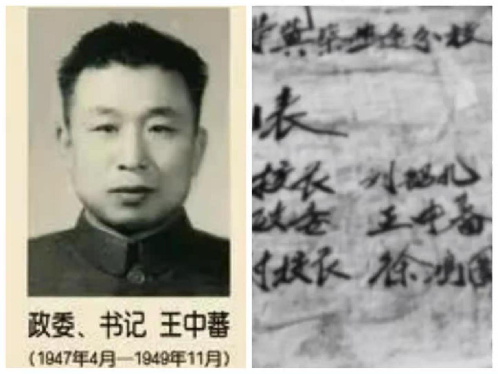 政委、书记 王中蕃
(1947年4月—1949年11月)
分校
表
校长 刘
政委 王中蕃
校长 徐鸿